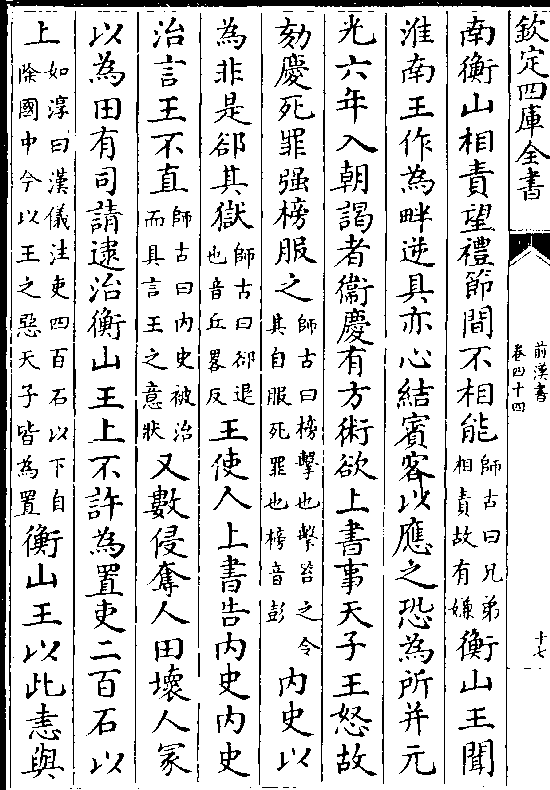 欽定四庫全書
前漢書
卷四十四
十七
南衡山相責望禮節間不相能師古曰兄弟相責故有嫌衡山王聞
淮南王作為畔逆具亦心結賓客以應之恐為所并元
光六年入朝謁者衛慶有方術欲上書事天子王怒故
劾慶死罪强榜服之師古曰榜擊也擊笞之令其自服死罪也榜音彭内史以
為非是郤其獄師古曰郤退也音丘畧反王使人上書告内史内史
治言王不直師古曰内史被治而具言王之意狀又數侵奪人田壞人冢
以為田有司請逮治衡山王上不許為置吏二百石以
上如淳曰漢儀注吏四百石以下自除國中今以王之惡天子皆為置衡山王以此恚與